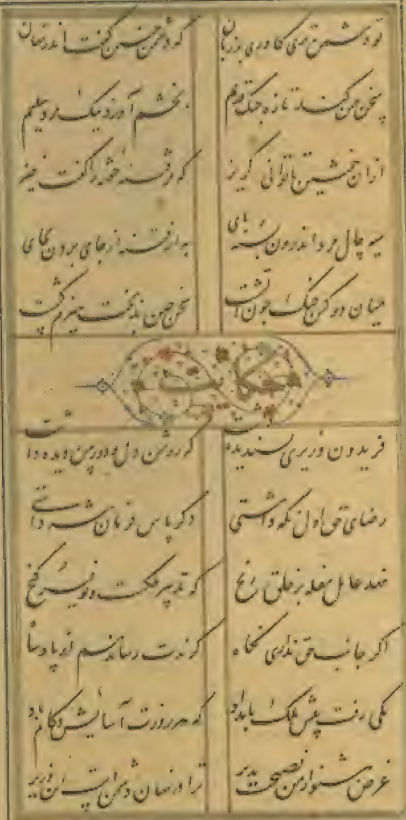 تو دشمن تری کاوری بر زبان که دشمن چنین گفت اندر نهان
سخن چین کند تازه جنگ قدیم بخشم آورد نیک مرد سلیم
ازان همنشین تا توانی گریز که مر فتنه خفته را گفت خیز
سیه چال و مرد اندرو بسته پای به از فتنه از جای بردن بجای
میان دو کس جنگ چون آتشست سخن چین بدبخت هیزم کشست
حکایت
فریدون وزیری پسندیده داشت که روشن دل و دوربین دیده داشت
رضای حق اول نگه داشتی دگر پاس فرمان شه داشتی
نهد عامل سفله بر خلق رنج که تدبیر ملکست و توفیر گنج
اگر جانب حق نداری نگاه گزندت رساند هم از پادشا
یکی رفت پیش ملک بامداد که هر روزت آسایش و کام باد
غرض مشنو از من نصیحت پذیر ترا در نهان دشمن است این وزیر